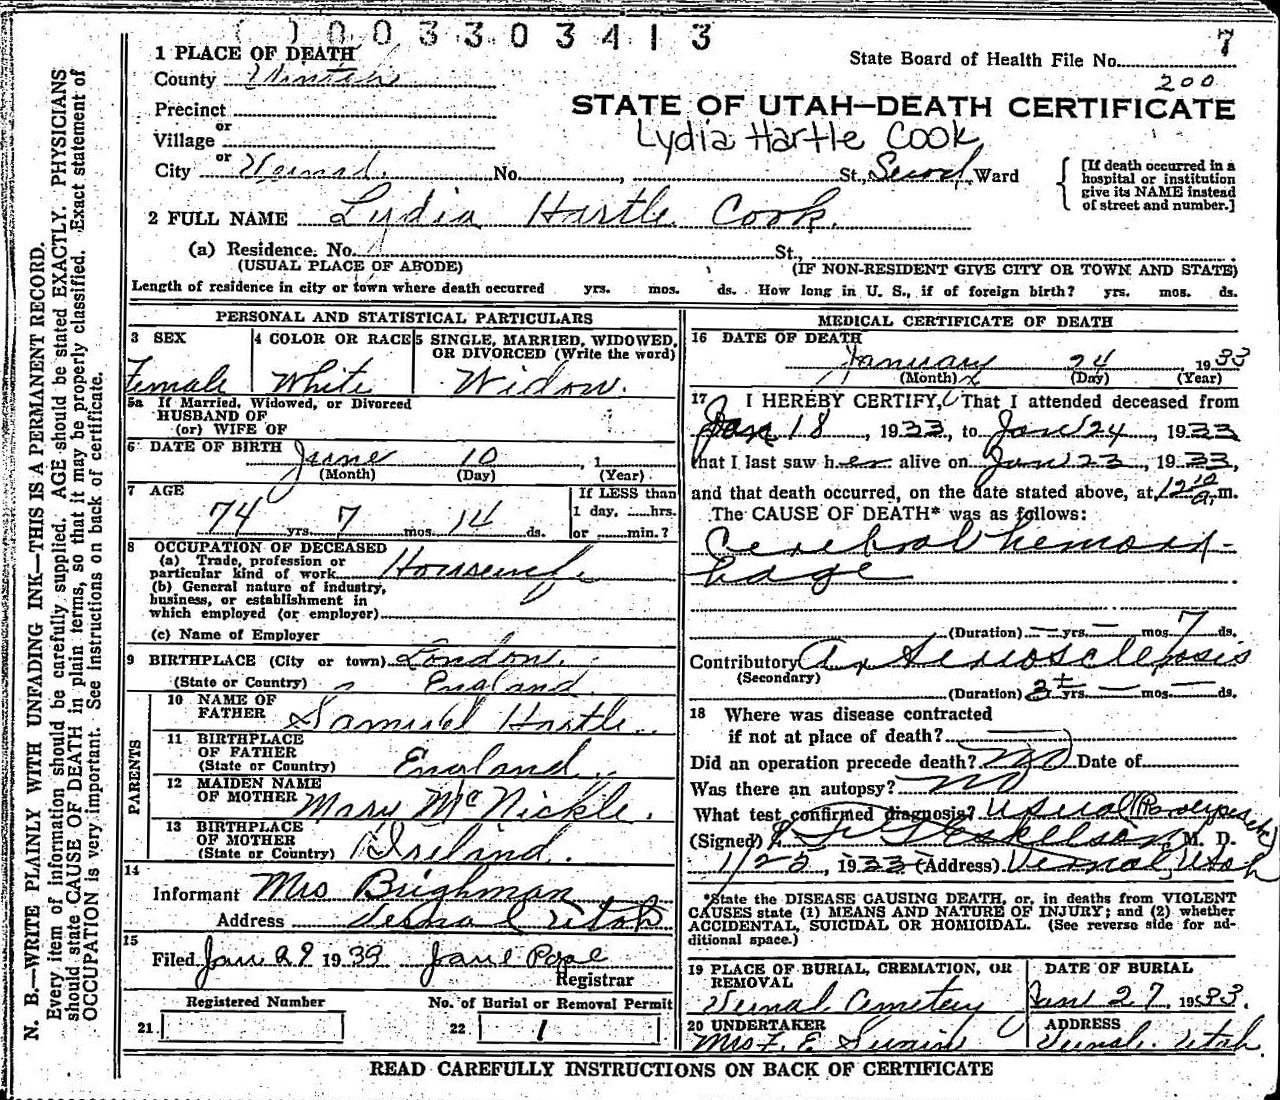 003303413
7
1 PLACE OF DEATH
State Board of Health File No.
County Uintah
200
Precinct
STATE OF UTAH—DEATH CERTIFICATE
or
Village
Lydia Hartle Cook
or
City Vernal No. , St., Second Ward
[If death occurred in a hospital or institution give its NAME instead of street and number.]
2 FULL NAME Lydia Hartle Cook.
(a) Residence. No. St.,
(USUAL PLACE OF ABODE) (IF NON-RESIDENT GIVE CITY OR TOWN AND STATE)
Length of residence in city or town where death occurred yrs. mos. ds. How long in U. S., if of foreign birth? yrs. mos. ds.
PERSONAL AND STATISTICAL PARTICULARS
3 SEX
Female
4 COLOR OR RACE
White
5 SINGLE, MARRIED, WIDOWED, OR DIVORCED (Write the word)
Widow.
5a If Married, Widowed, or Divorced
HUSBAND OF
(or) WIFE OF
6 DATE OF BIRTH
June 10 , 1
(Month) (Day) (Year)
7 AGE
74 yrs. 7 mos. 14 ds.
If LESS than
1 day, ......hrs.
or ......min.?
8 OCCUPATION OF DECEASED
(a) Trade, profession or
particular kind of work Housewife
(b) General nature of industry,
business, or establishment in
which employed (or employer)
(c) Name of Employer
9 BIRTHPLACE (City or town) London.
(State or Country) England.
PARENTS
10 NAME OF
FATHER Samuel Hartle.
11 BIRTHPLACE
OF FATHER
(State or Country) England.
12 MAIDEN NAME
OF MOTHER Mary McNickle.
13 BIRTHPLACE
OF MOTHER
(State or Country) Ireland.
14
Informant Mrs Brighman
Address Vernal Utah
15
Filed Jan 29 1933
Registrar
Registered Number No. of Burial or Removal Permit
21 22 1
MEDICAL CERTIFICATE OF DEATH
16 DATE OF DEATH
January 24 1933
(Month) (Day) (Year)
17 I HEREBY CERTIFY, That I attended deceased from
Jan 18, 1933, to Jan 24, 1933
that I last saw her alive on Jan 23, 1933,
and that death occurred, on the date stated above, at 12 10 a.m.
The CAUSE OF DEATH* was as follows:
Cerebral hemorr-
hage
(Duration) — yrs. — mos. 7 ds.
Contributory Arteriosclerosis
(Secondary)
(Duration) 3+ yrs. — mos. — ds.
18 Where was disease contracted
if not at place of death?
Did an operation precede death? No Date of
Was there an autopsy? No
What test confirmed diagnosis? Usual
(Signed) Eskelson M. D.
1/25, 1933 (Address) Vernal, Utah
*State the DISEASE CAUSING DEATH, or, in deaths from VIOLENT
CAUSES state (1) MEANS AND NATURE OF INJURY; and (2) whether
ACCIDENTAL, SUICIDAL OR HOMICIDAL. (See reverse side for ad-
ditional space.)
19 PLACE OF BURIAL, CREMATION, OR
REMOVAL
Vernal Cemetery
DATE OF BURIAL
Jan 27 1933.
20 UNDERTAKER
Mrs. F. E.
ADDRESS
Vernal. Utah.
READ CAREFULLY INSTRUCTIONS ON BACK OF CERTIFICATE
N. B.—WRITE PLAINLY WITH UNFADING INK—THIS IS A PERMANENT RECORD.
Every item of information should be carefully supplied. AGE should be stated EXACTLY. PHYSICIANS
should state CAUSE OF DEATH in plain terms, so that it may be properly classified. Exact statement of
OCCUPATION is very important. See Instructions on back of certificate.